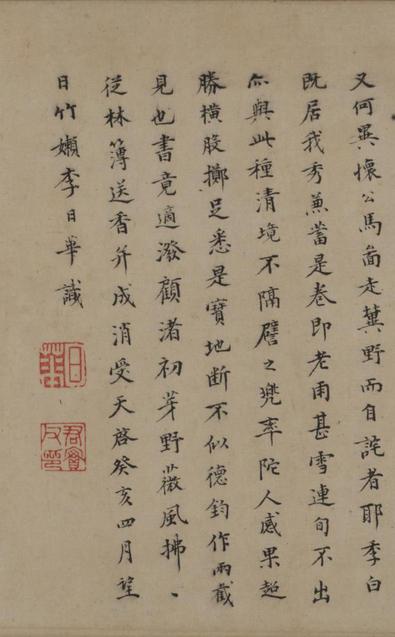 又何異懷公馬面走冀野而自詫者耶季白
既居我秀兼蓄是卷即老雨甚雪連旬不出
亦與此種清境不隔譬之兜率陀人感果超
勝橫股擲足悉是寶地斷不似德鈞作兩截
見也書竟適潑顧渚初芽野薇風拂〻
從林簿送香并成消受天啓癸亥四月望
日竹嬾李日華識
日華
君實父印